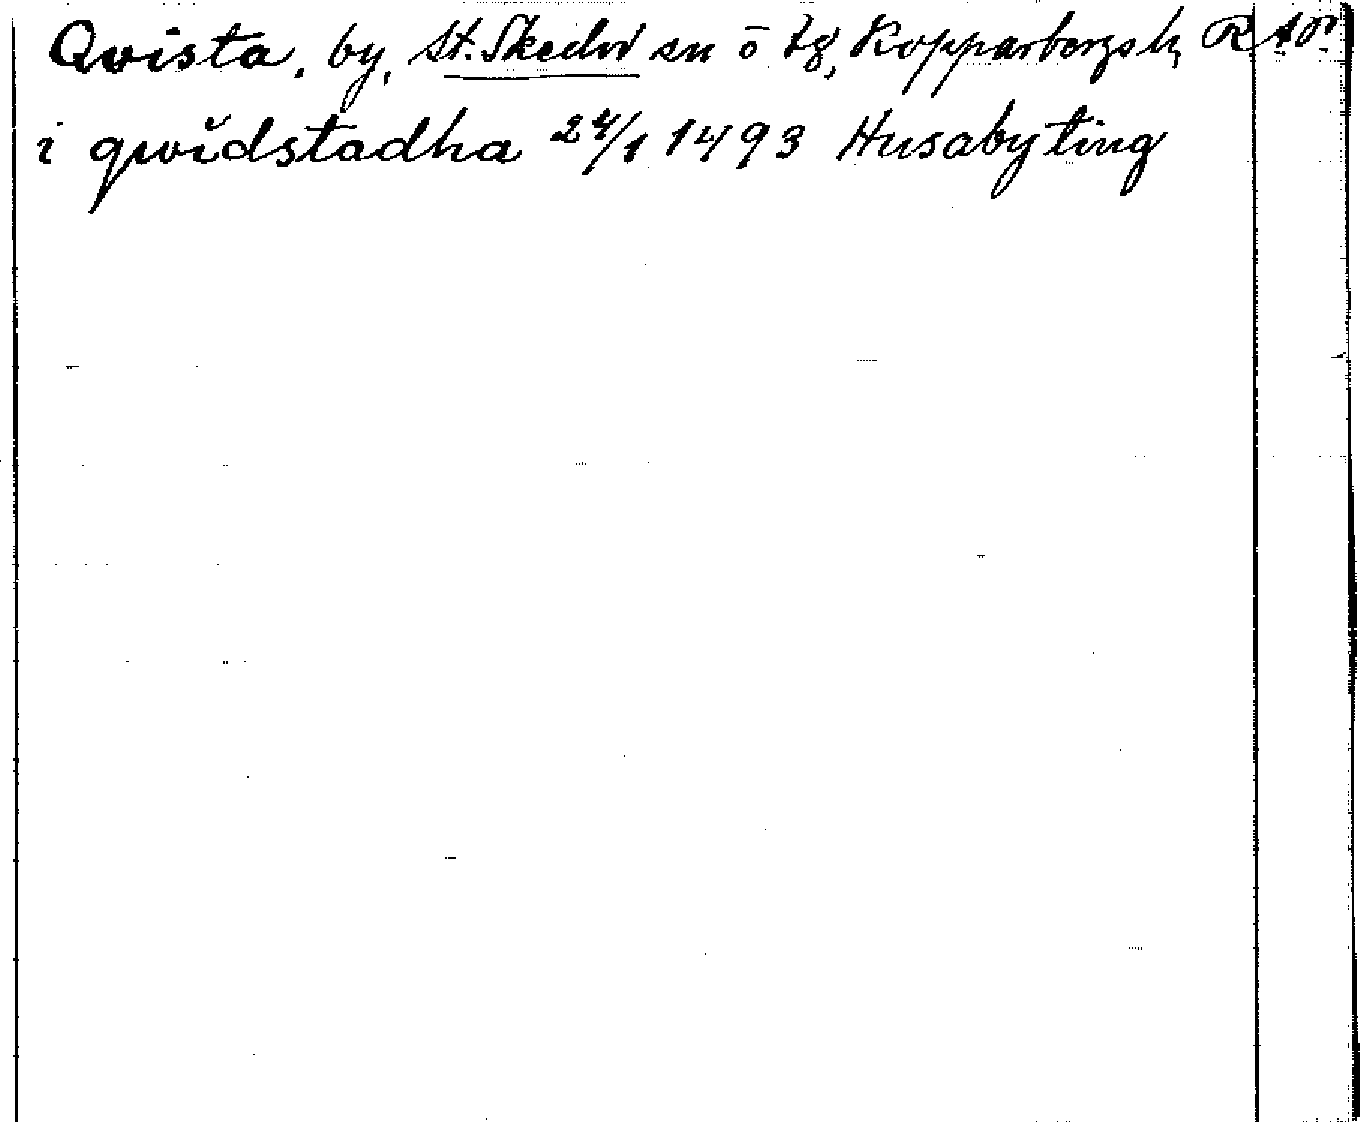 Qvista, by, St. Skedvi sn o tg, Kopparbergs l,
i qwidstadha 24/1 1493 Husaby ting